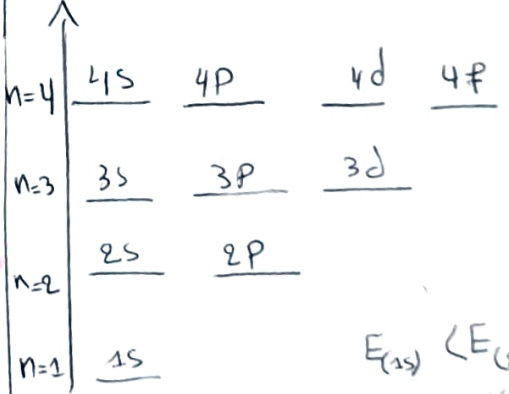 n=4 4s 4p 4d 4f
n=3 3s 3p 3d
n=2 2s 2p
n=1 1s E(1s) < E(